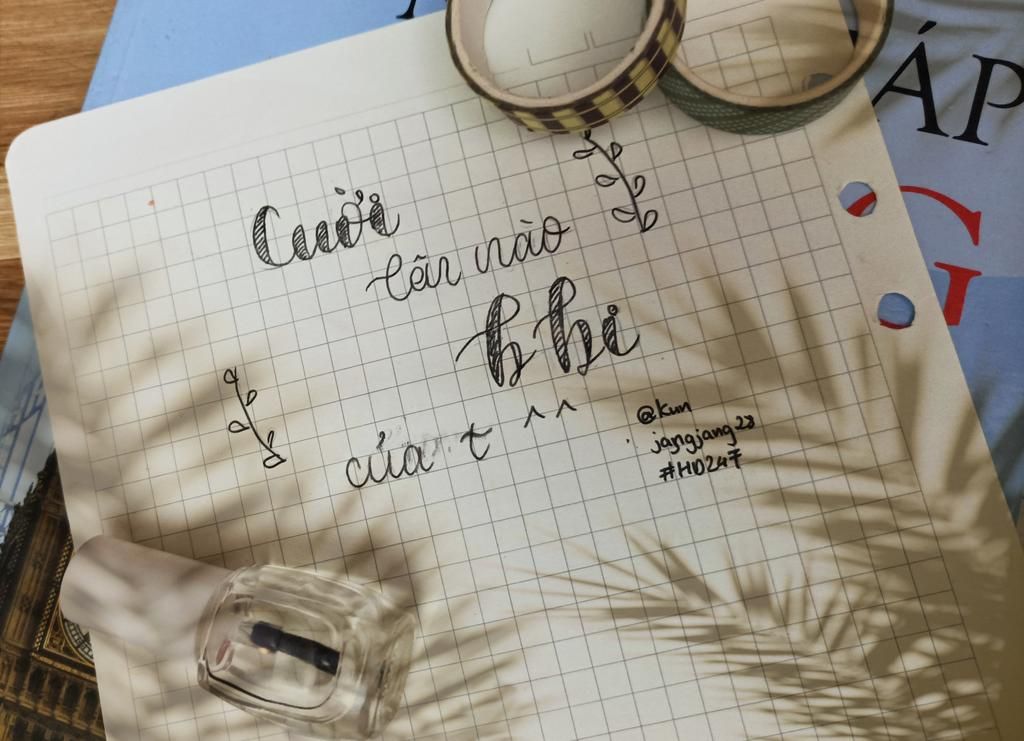 ÁP
Cười
lên nào
khi
của t ^^
@Kun
jangjang28
#HD247
G